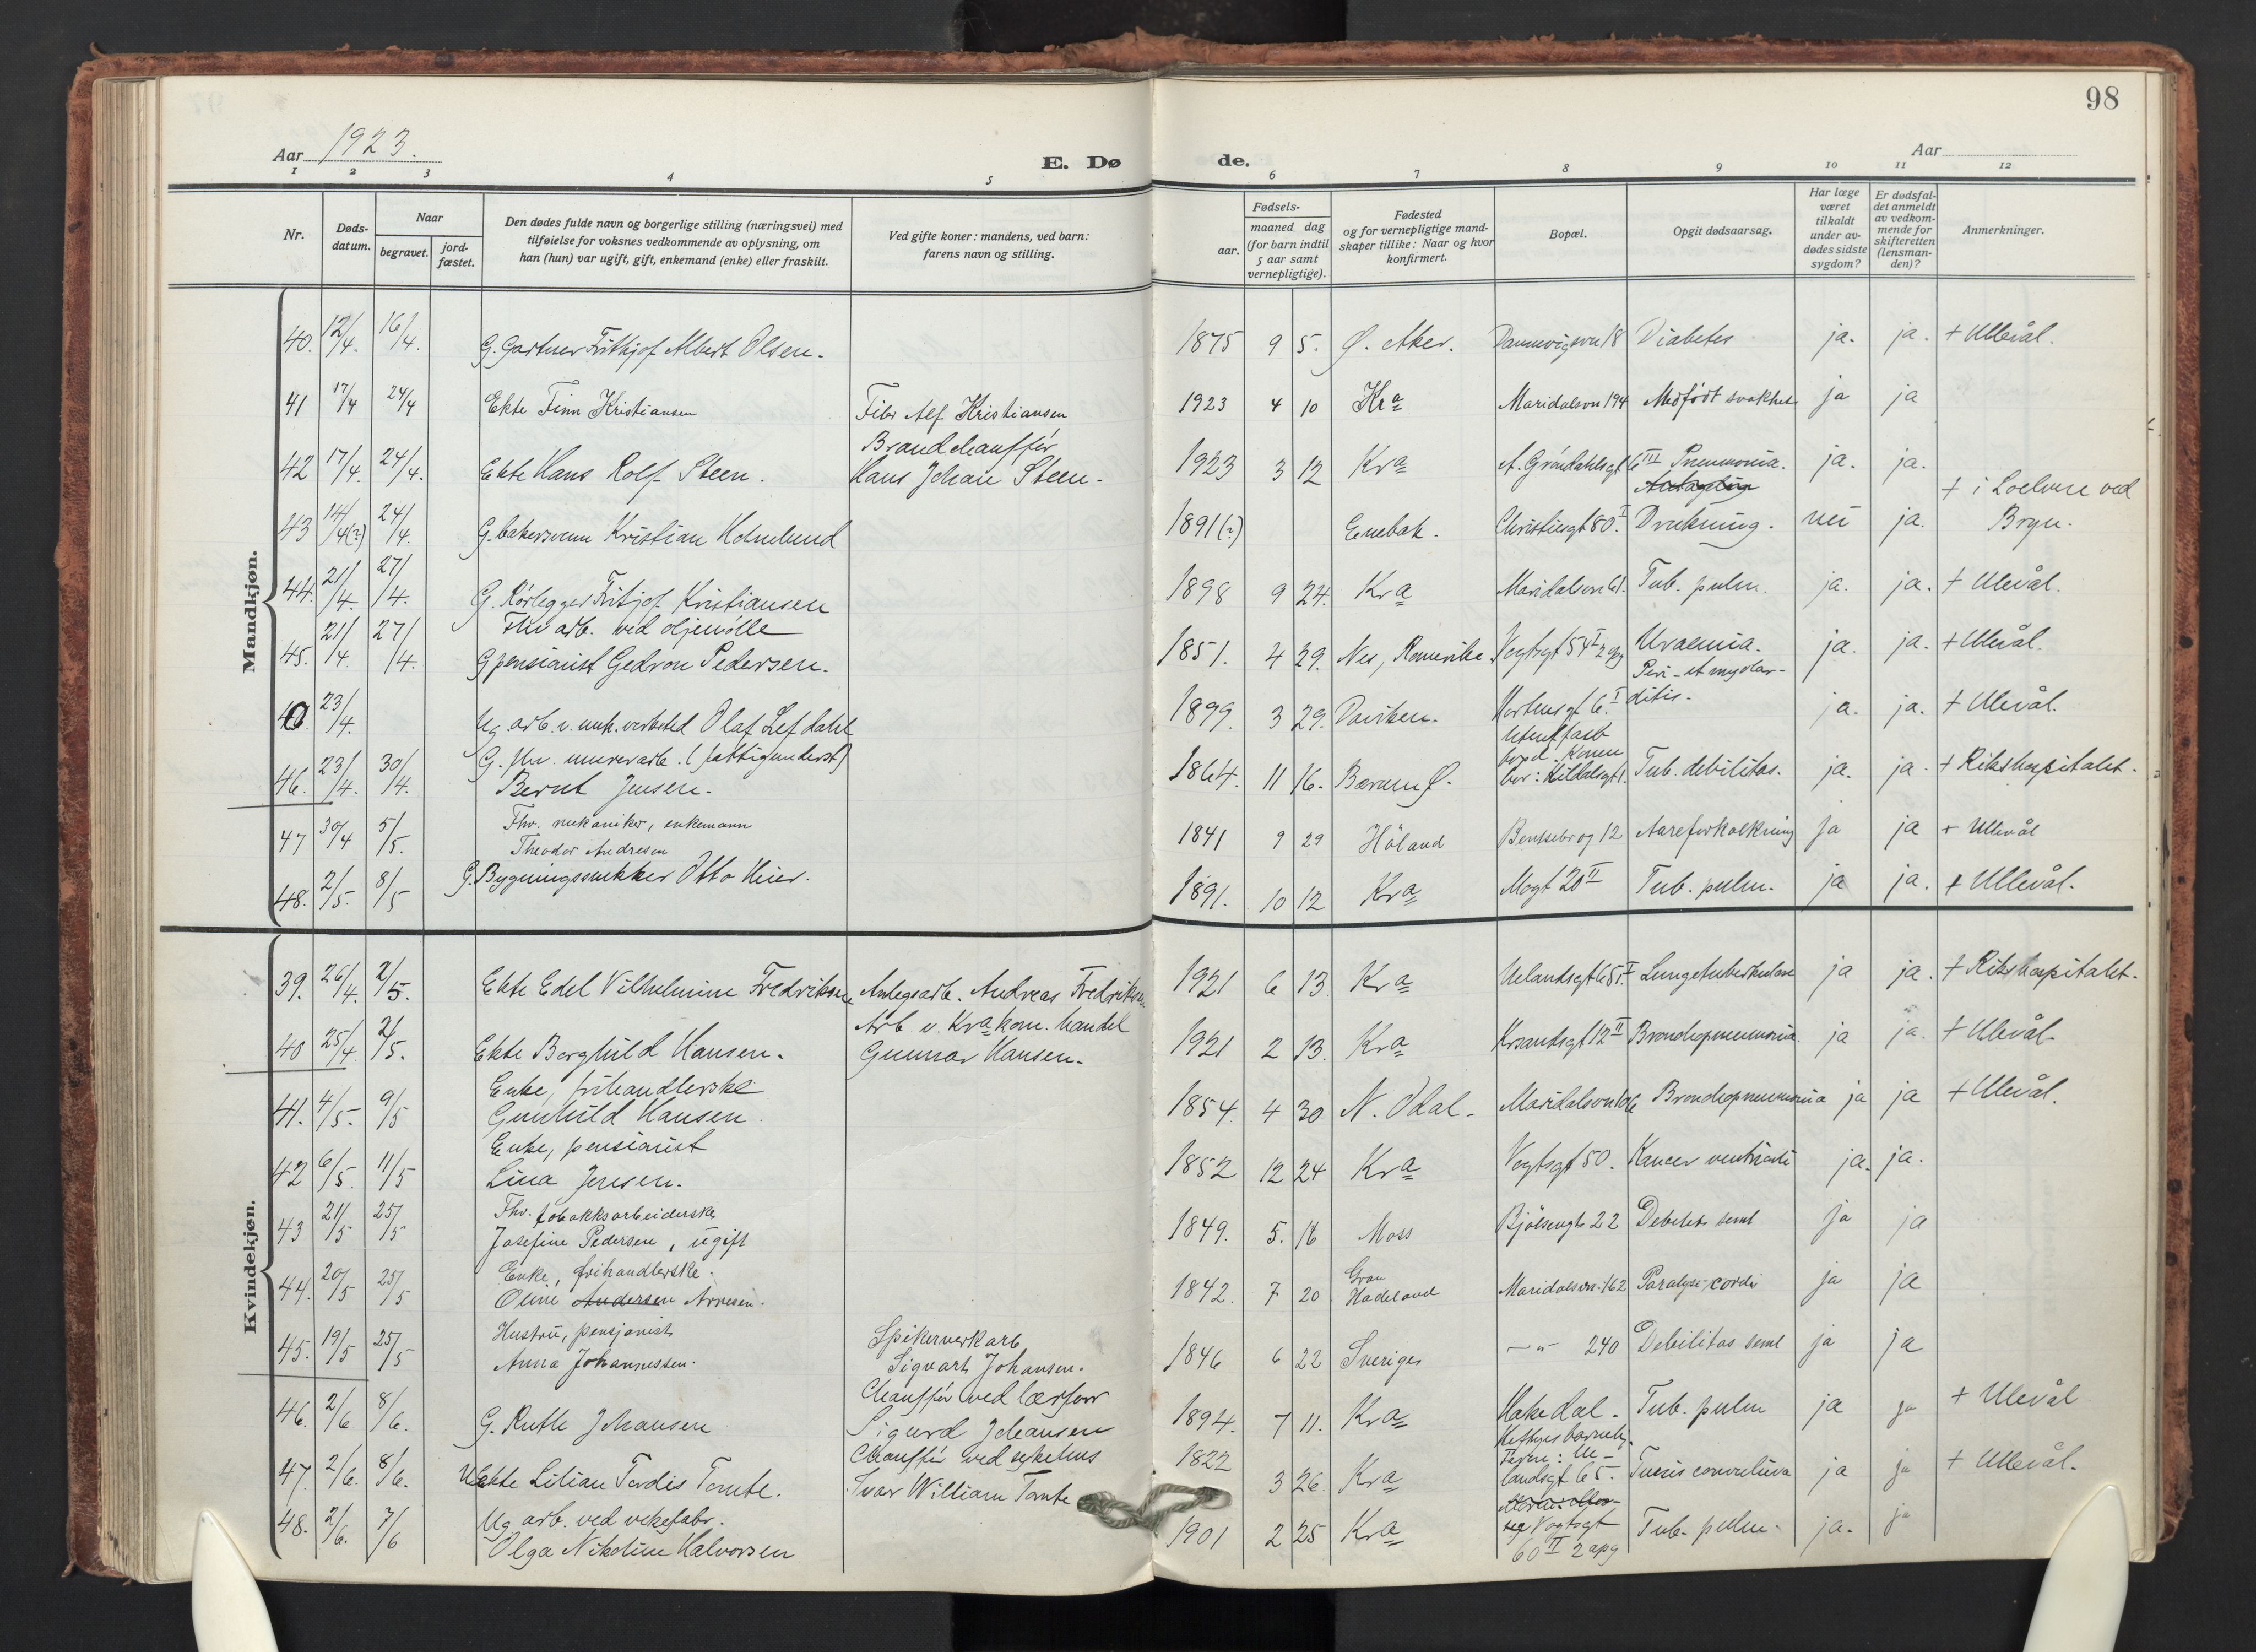 98
Aar 1923.
E. Dø de.
Aar
1 2 3 4 5 6 7 8 9 10 11 12
Nr.
Døds-
datum.
Naar
begravet.
jord-
fæstet.
Den dødes fulde navn og borgerlige stilling (næringsvei) med
tilføielse for voksnes vedkommende av oplysning, om
han (hun) var ugift, gift, enkemand (enke) eller fraskilt.
Ved gifte koner: mandens, ved barn:
farens navn og stilling.
Fødsels-
aar.
maaned dag
(for barn indtil
5 aar samt
vernepligtige).
Fødested
og for vernepligtige mand-
skaper tillike: Naar og hvor
konfirmert.
Bopæl.
Opgit dødsaarsag.
Har læge
været
tilkaldt
under av-
dødes sidste
sygdom?
Er dødsfal-
det anmeldt
av vedkom-
mende for
skifteretten
(lensman-
den)?
Anmerkninger.
Mandkjøn.
40. 12/4. 16/4. G. Gartner Frithjof Albert Olsen. 1875 9 5. Ø. Aker. 18 Diabetes ja. ja. + Ullevål.
41 17/4 24/4 Ekte Finn Kristiansen Alf Kristiansen 1923 4 10 Kra Maridalsvn 194 Medfödt svakhet ja ja
Brandchauffør
42 17/4. 24/4. Ekte Hans Rolf Steen. Hans Johan Steen. 1923 3 12 Kra A. Gröndahlsgt 6 III Pneumonia. ja. ja.
+ i Loelven ved
43 14/4(?) 24/4. G. bakersvenn Kristian Holmlund 1891(?) Enebak. Christiesgt 80. I Drukning. nei ja. Bryn.
44. 21/4. 27/4. G. Rørlegger Fritjof Kristiansen 1898 9 24. Kra Maridalsvn 61. Tub. pulm. ja. ja. + Ulevål.
Fhv arb. ved oljemølle
45. 21/4 27/4. G pensionist Gedvon Pedersen. 1851. 4 29. Nes, Romerike. Vogtsgt 54 I 2 opg Uraemia. ja. ja. + Ulevål.
Peri- et myokar-
ditis.
0 23/4. Ug arb. v. mek. verksted Olaf Lefdahl 1899. 3 29. Daviken. Hortensgt 6. I ja. ja. + Ulevål.
G. fhv. murerarb. (fattigunderst)
46. 23/4. 30/4. Bernt Jensen. 1864. 11 16. Bærum Ø. Uten fast
bopel. Konen
bor: Kildalsgt 1. Tub. debilitas. ja. ja. + Rikshospitalet.
Fhv. mekaniker, enkemann
47 30/4 5/5. Theodor Andresen 1841 9 29 Höland Bentsebrog 12 Aareforkalkning ja ja + Ullevål
48. 2/5. 8/5 G. Bygningssnekker Otto Heier. 1891. 10 12 Kra Mogt 20 II Tub. pulm. ja ja. + Ullevål.
Kvindekjøn.
39. 26/4. 2/5. Ekte Edel Vilhelmine Fredriksen Anlegsarb. Andreas Fredriksen 1921 6 13 Kra Uelandsgt 65 I Lungetuberkulose ja ja. + Rikshospitalet.
Arb. v. Kra kom. handel
40 25/4 2/5. Ekte Borghild Hansen. Gunnar Hansen. 1921 2 13. Kra Krsandsgt 12 II Bronchopneumonia. ja ja. + Ulevål.
Enke, frihandlerske
41. 4/5. 9/5 Gunhild Hansen. 1854. 4 30 N. Odal. Maridalsvn Bronchopneumonia ja ja + Ulevål.
Enke, pensionist
42 6/5. 11/5 Lina Jensen. 1852 12 24 Kra Vogtsgt 50. Kancer ventriculi ja. ja.
Fhv. tobakksarbeiderske
43 21/5 25/5 Josefine Pedersen, ugift 1849. 5. 16 Moss Bjölsengt 22 Debilitas senil ja ja
Enke, frihandlerske.
44. 20/5 25/5 Oline Andersen Arnesen. 1842. 7 20 Gran
Hadeland Maridalsvn. 162 Paralyse cordi ja ja
Hustru, pensjonist
45. 19/5 25/5 Anna Johannessen. Spikerverkarb
Sigvart Johansen. 1846 6 22 Sverige — " — 240 Debilitas senil ja ja
Chauffør ved lærforr
46. 2/6 8/6. G. Ruth Johansen Sigurd Johansen 1894. 7 11. Kra Hakedal. Tub. pulm ja ja + Ulevål
Chauffør ved sykehus
47. 2/6. 8/6. Uekte Lilian Tordis Tomte. Ivar William Tomte 1822 3 26. Kra Heftyes barnehj.
Faren: Ue-
landsgt 65. Tussis convulsiva ja ja + Ullevål.
48. 2/6. 7/6 Ug arb. ved vekefabr.
Olga Nikoline Halvorsen 1901 2 25 Kra Vogtsgt
60 II 2 opg Tub. pulm. ja. ja